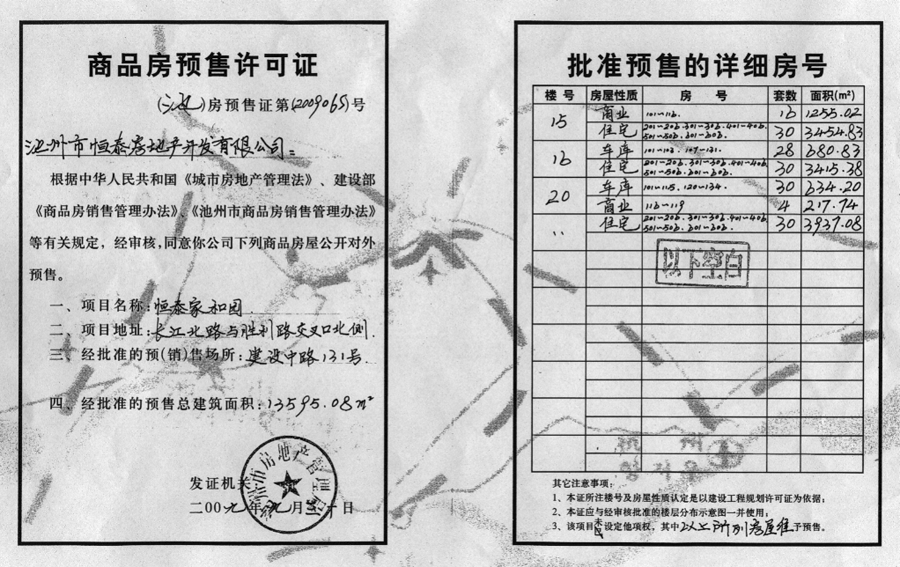 商品房预售许可证
(池)房预售证第(2009065)号
池州市恒泰房地产开发有限公司:
根据中华人民共和国《城市房地产管理法》、建设部
《商品房销售管理办法》、《池州市商品房销售管理办法》
等有关规定,经审核,同意你公司下列商品房屋公开对外
预售。
一、项目名称:恒泰家和园
二、项目地址:长江北路与胜利路交叉口北侧.
三、经批准的预(销)售场所:建设中路131号.
四、经批准的预售总建筑面积:13595.08m²
发证机关
池州市房地产管理
二00九年九月二十日
批准预售的详细房号
楼号 房屋性质 房号 套数 面积(m²)
15 商业 101~116. 16 1255.02
住宅 201~206.301~306.401~406. 501~506.601~606. 30 3454.83
16 车库 101~103.107~131. 28 680.83
住宅 201~206.301~306.401~406. 501~506.601~606. 30 3415.38
20 车库 101~115.120~134. 30 634.20
商业 116~119 4 217.74
〃 住宅 201~206.301~306.401~406. 501~506.601~606. 30 3937.08
以下空白
其它注意事项:
1、本证所注楼号及房屋性质认定是以建设工程规划许可证为依据;
2、本证应与经审核批准的楼层分布示意图一并使用;
3、该项目未设定他项权,其中以上所列房屋准予预售。